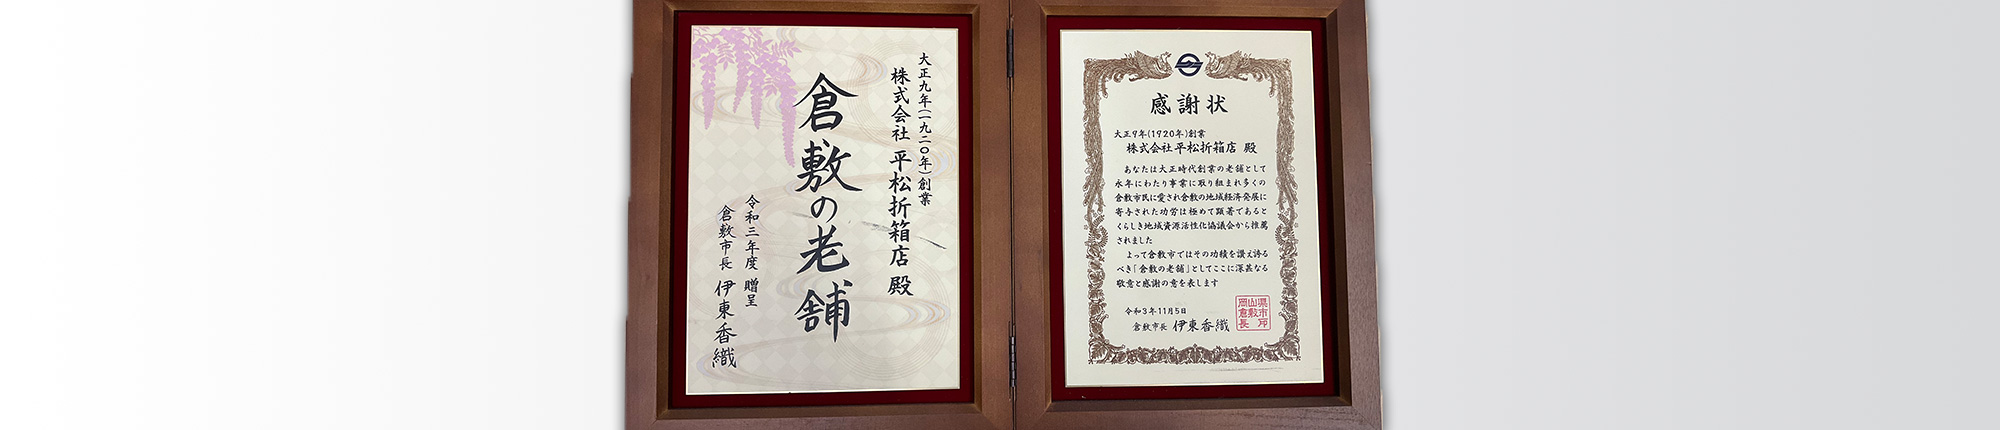 大正九年(一九二〇年)創業
株式会社 平松折箱店 殿
倉敷の老舗
令和三年度 贈呈
倉敷市長 伊東香織
感謝状
大正9年(1920年)創業
株式会社平松折箱店 殿
あなたは大正時代創業の老舗として
永年にわたり事業に取り組まれ多くの
倉敷市民に愛され倉敷の地域経済発展に
寄与された功労は極めて顕著であると
くらしき地域資源活性化協議会から推薦
されました
よって倉敷市ではその功績を讃え誇る
べき「倉敷の老舗」としてここに深甚なる
敬意と感謝の意を表します
令和3年11月5日
倉敷市長 伊東香織
岡山県
倉敷市
長印